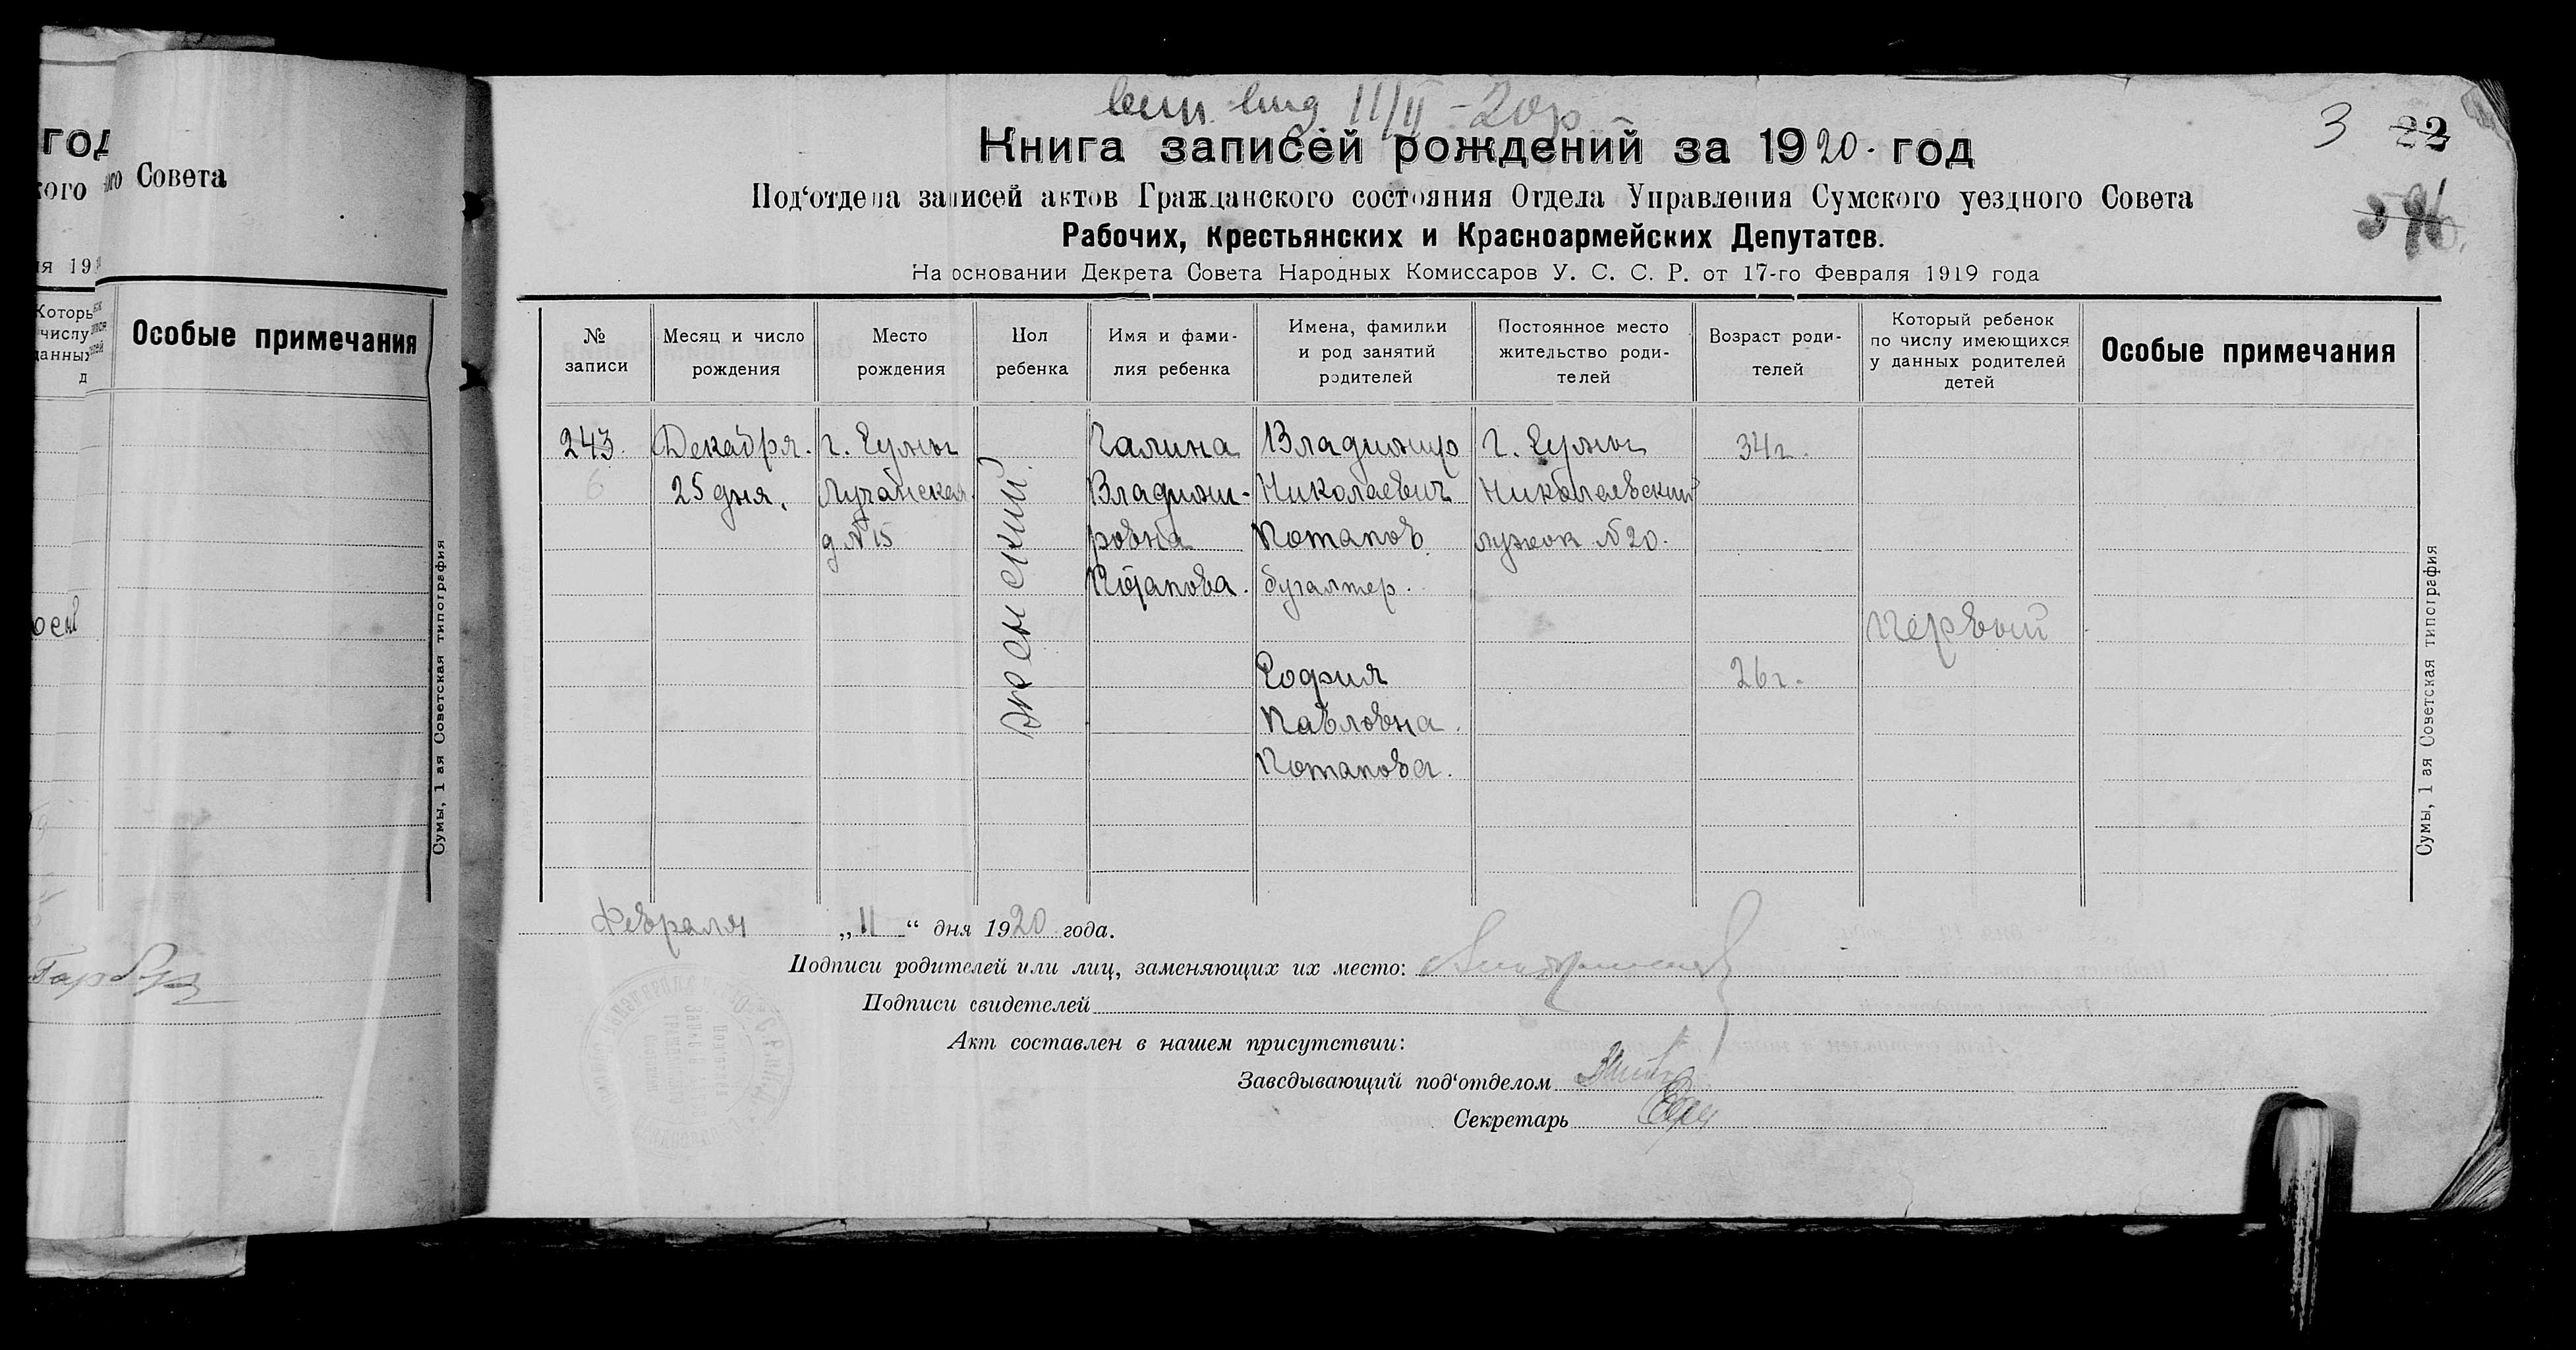 год
кого
ного Совета
ия 19
Которы
числу
данных
д
Особые примечания
Сумы, 1 ая Советская типография
Гарбуз
вып. 11/II - 20 р
Книга записей рождений за 1920. год
3 22
596
Под‘отдела записей актов Гражданского состояния Отдела Управления Сумского уездного Совета
Рабочих, Крестьянских и Красноармейских Депутатов.
На основании Декрета Совета Народных Комиссаров У. С. С. Р. от 17-го Февраля 1919 года
№ записи
Месяц и число рождения
Место рождения
Пол ребенка
Имя и фами-
лия ребенка
Имена, фамилии
и род занятий
родителей
Постоянное место
жительство роди-
телей
Возраст роди-
телей
Который ребенок
по числу имеющихся
у данных родителей
детей
Особые примечания
243.
6
Декабря.
25 дня.
г. Сумы
Лучанская
д. № 15
женский.
Галина
Владими-
ровна
Потапова.
Владимир
Николаевич
Потапов
бугалтер.
София
Павловна.
Потапова.
г. Сумы
Николаевский
лужок № 20.
34 г.
26 г.
первый
Сумы, 1 ая Советская типография
Февраля „11“ дня 1920 года.
Подписи родителей или лиц, заменяющих их место:
Подписи свидетелей
Акт составлен в нашем присутствии:
Заведывающий под‘отделом
Секретарь